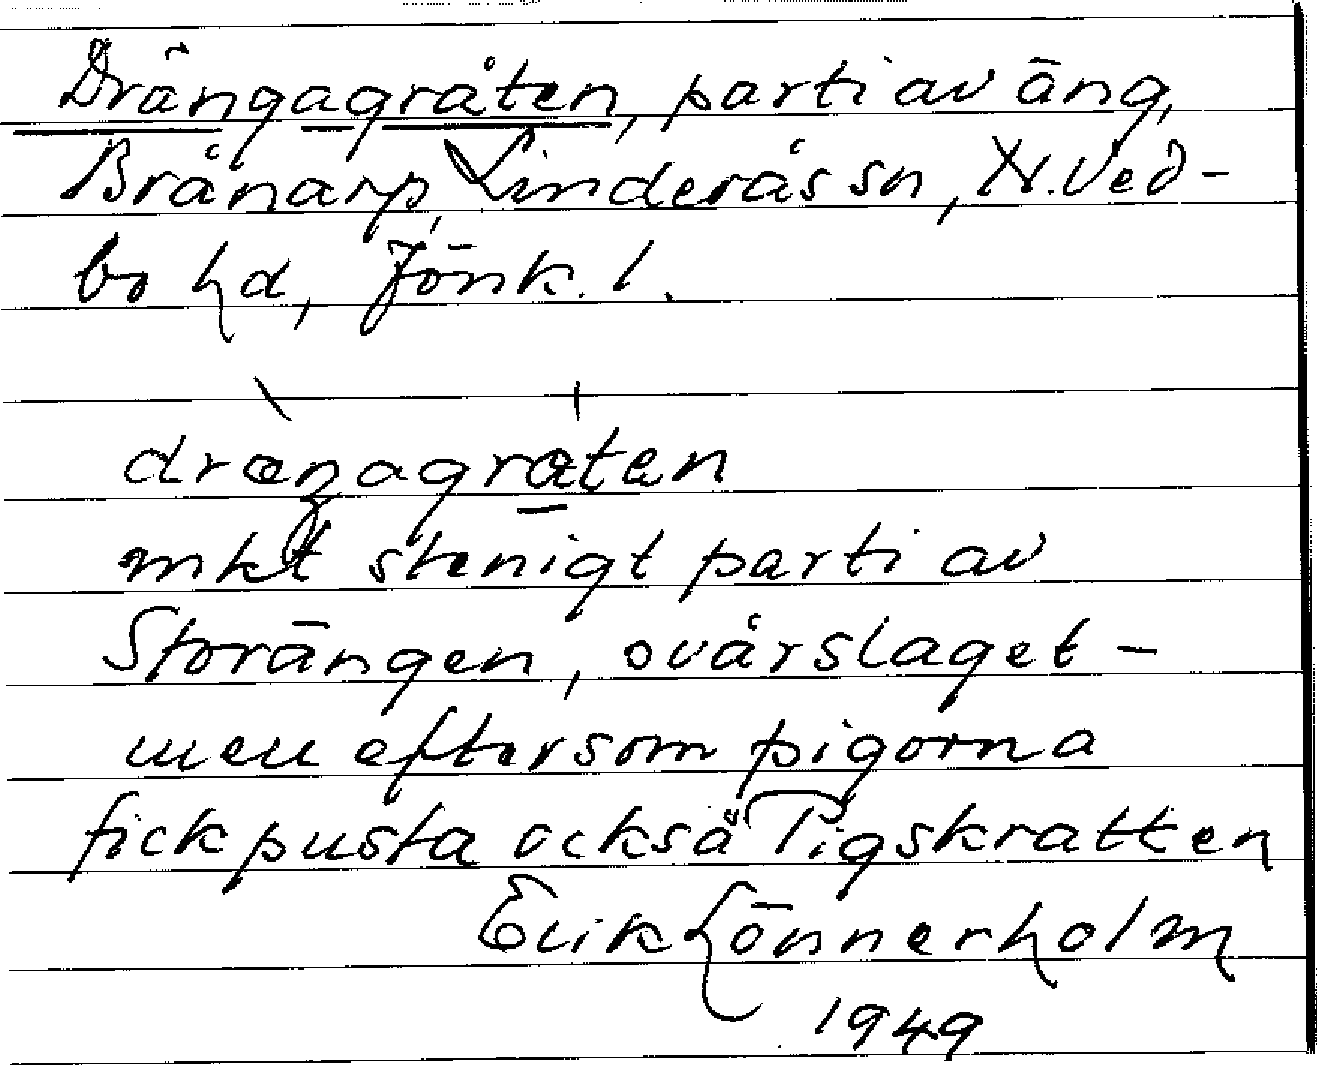 Drängagråten, parti av äng,
Brånarp, Linderås sn, N. Ved-
bo hd, Jönk. l.
dræŋagråten
mkt stenigt parti av
Storängen, svårslaget -
men eftersom pigorna
fick pusta också "Pigskratten
Erik Lönnerholm
1949